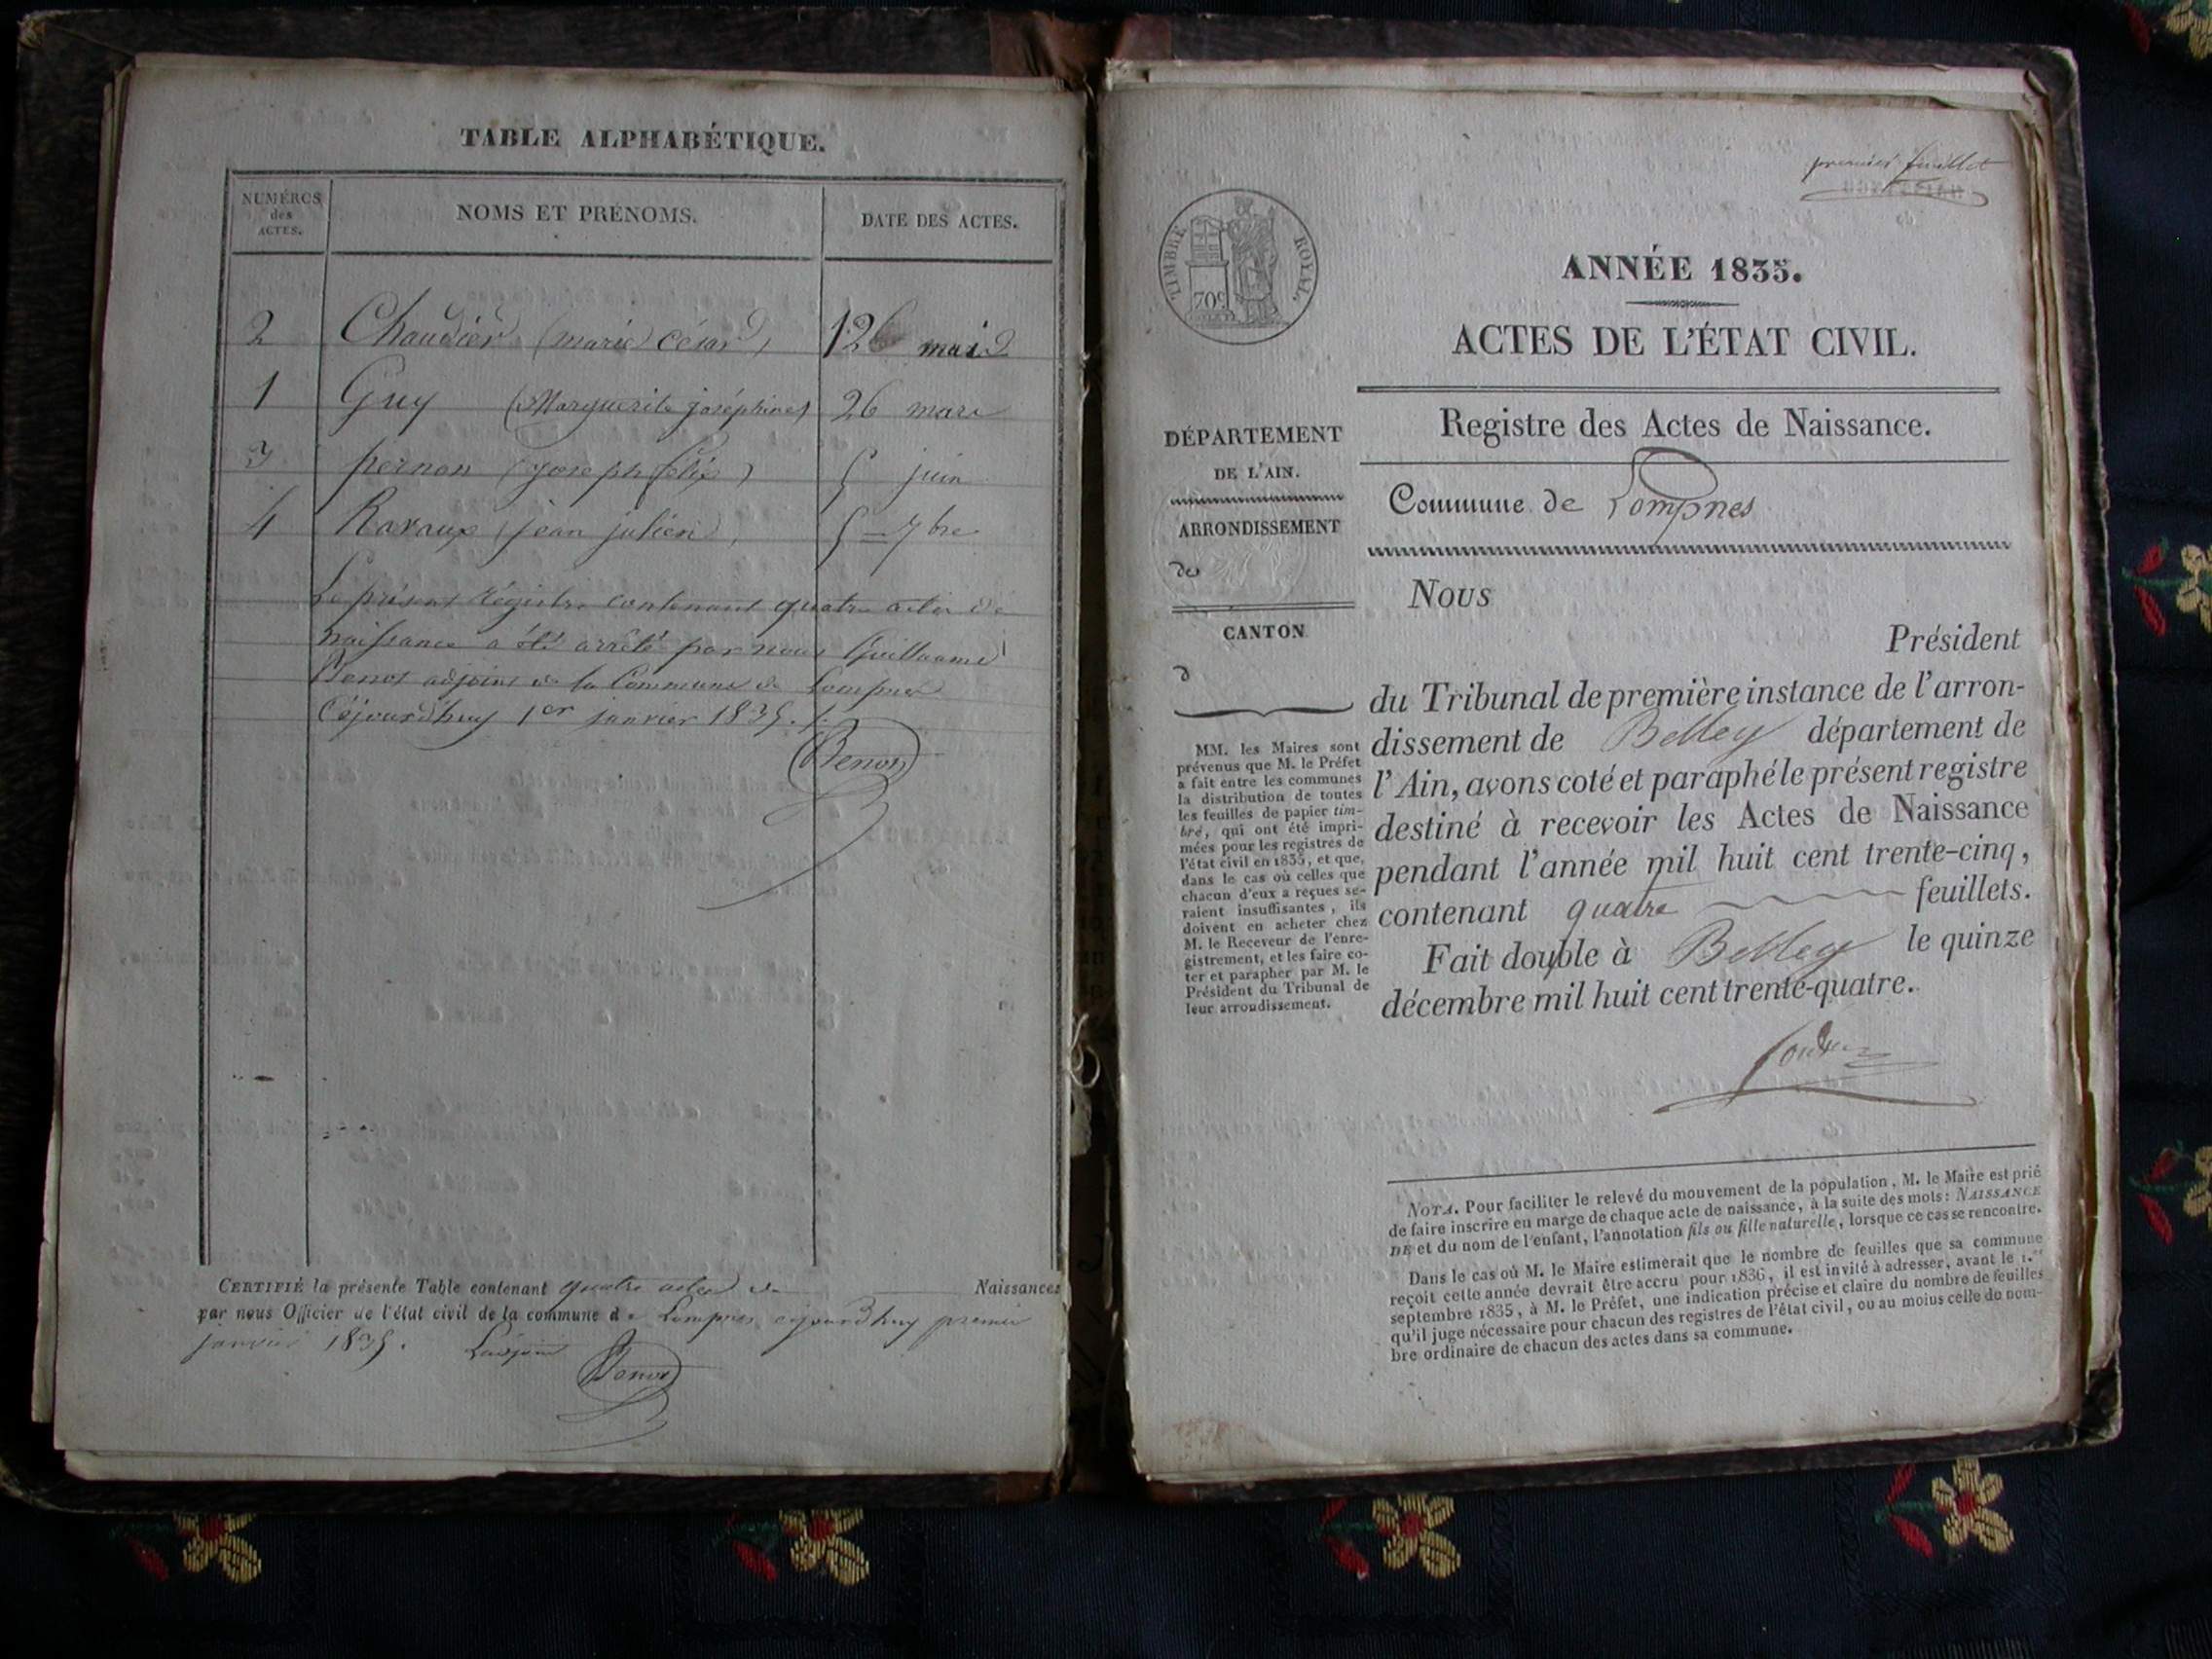 TABLE ALPHABÉTIQUE.
NUMÉROS des ACTES.
NOMS ET PRÉNOMS.
DATE DES ACTES.
2 Chaudier (marie césar) 12 mai
1 Guy (Marguerite joséphine) 26 mars
3 pernon (joseph félix) 5 juin
4 Ravaux (jean julien) 5 = 7bre
Le présent régistre contenant quatre actes de
naissance a été arrêté par nous Guillaume
Benot adjoint de la Commune de Lompnes
Céjourdhuy 1er janvier 1835.
Benot
CERTIFIÉ la présente Table contenant quatre actes de Naissances
par nous Officier de l'état civil de la commune de Lompnes cejourdhuy premier
janvier 1835. Ladjoint
Benot
premier feuillet
TIMBRE ROYAL
70c
ANNÉE 1835.
ACTES DE L'ÉTAT CIVIL.
DÉPARTEMENT
DE L'AIN.
ARRONDISSEMENT
de
CANTON
d
MM. les Maires sont
prévenus que M. le Préfet
a fait entre les communes
la distribution de toutes
les feuilles de papier tim-
bré, qui ont été impri-
mées pour les registres de
l'état civil en 1835, et que,
dans le cas où celles que
chacun d'eux a reçues se-
raient insuffisantes, ils
doivent en acheter chez
M. le Receveur de l'enre-
gistrement, et les faire co-
ter et parapher par M. le
Président du Tribunal de
leur arrondissement.
Registre des Actes de Naissance.
Commune de Lompnes
Nous
Président
du Tribunal de première instance de l'arron-
dissement de Belley département de
l'Ain, avons coté et paraphé le présent registre
destiné à recevoir les Actes de Naissance
pendant l'année mil huit cent trente-cinq,
contenant quatre feuillets.
Fait double à Belley le quinze
décembre mil huit cent trente-quatre.
NOTA. Pour faciliter le relevé du mouvement de la population, M. le Maire est prié
de faire inscrire en marge de chaque acte de naissance, à la suite des mots: NAISSANCE
DE et du nom de l'enfant, l'annotation fils ou fille naturelle, lorsque ce cas se rencontre.
Dans le cas où M. le Maire estimerait que le nombre de feuilles que sa commune
reçoit cette année devrait être accru pour 1836, il est invité à adresser, avant le 1.er
septembre 1835, à M. le Préfet, une indication précise et claire du nombre de feuilles
qu'il juge nécessaire pour chacun des registres de l'état civil, ou au moins celle du nom-
bre ordinaire de chacun des actes dans sa commune.